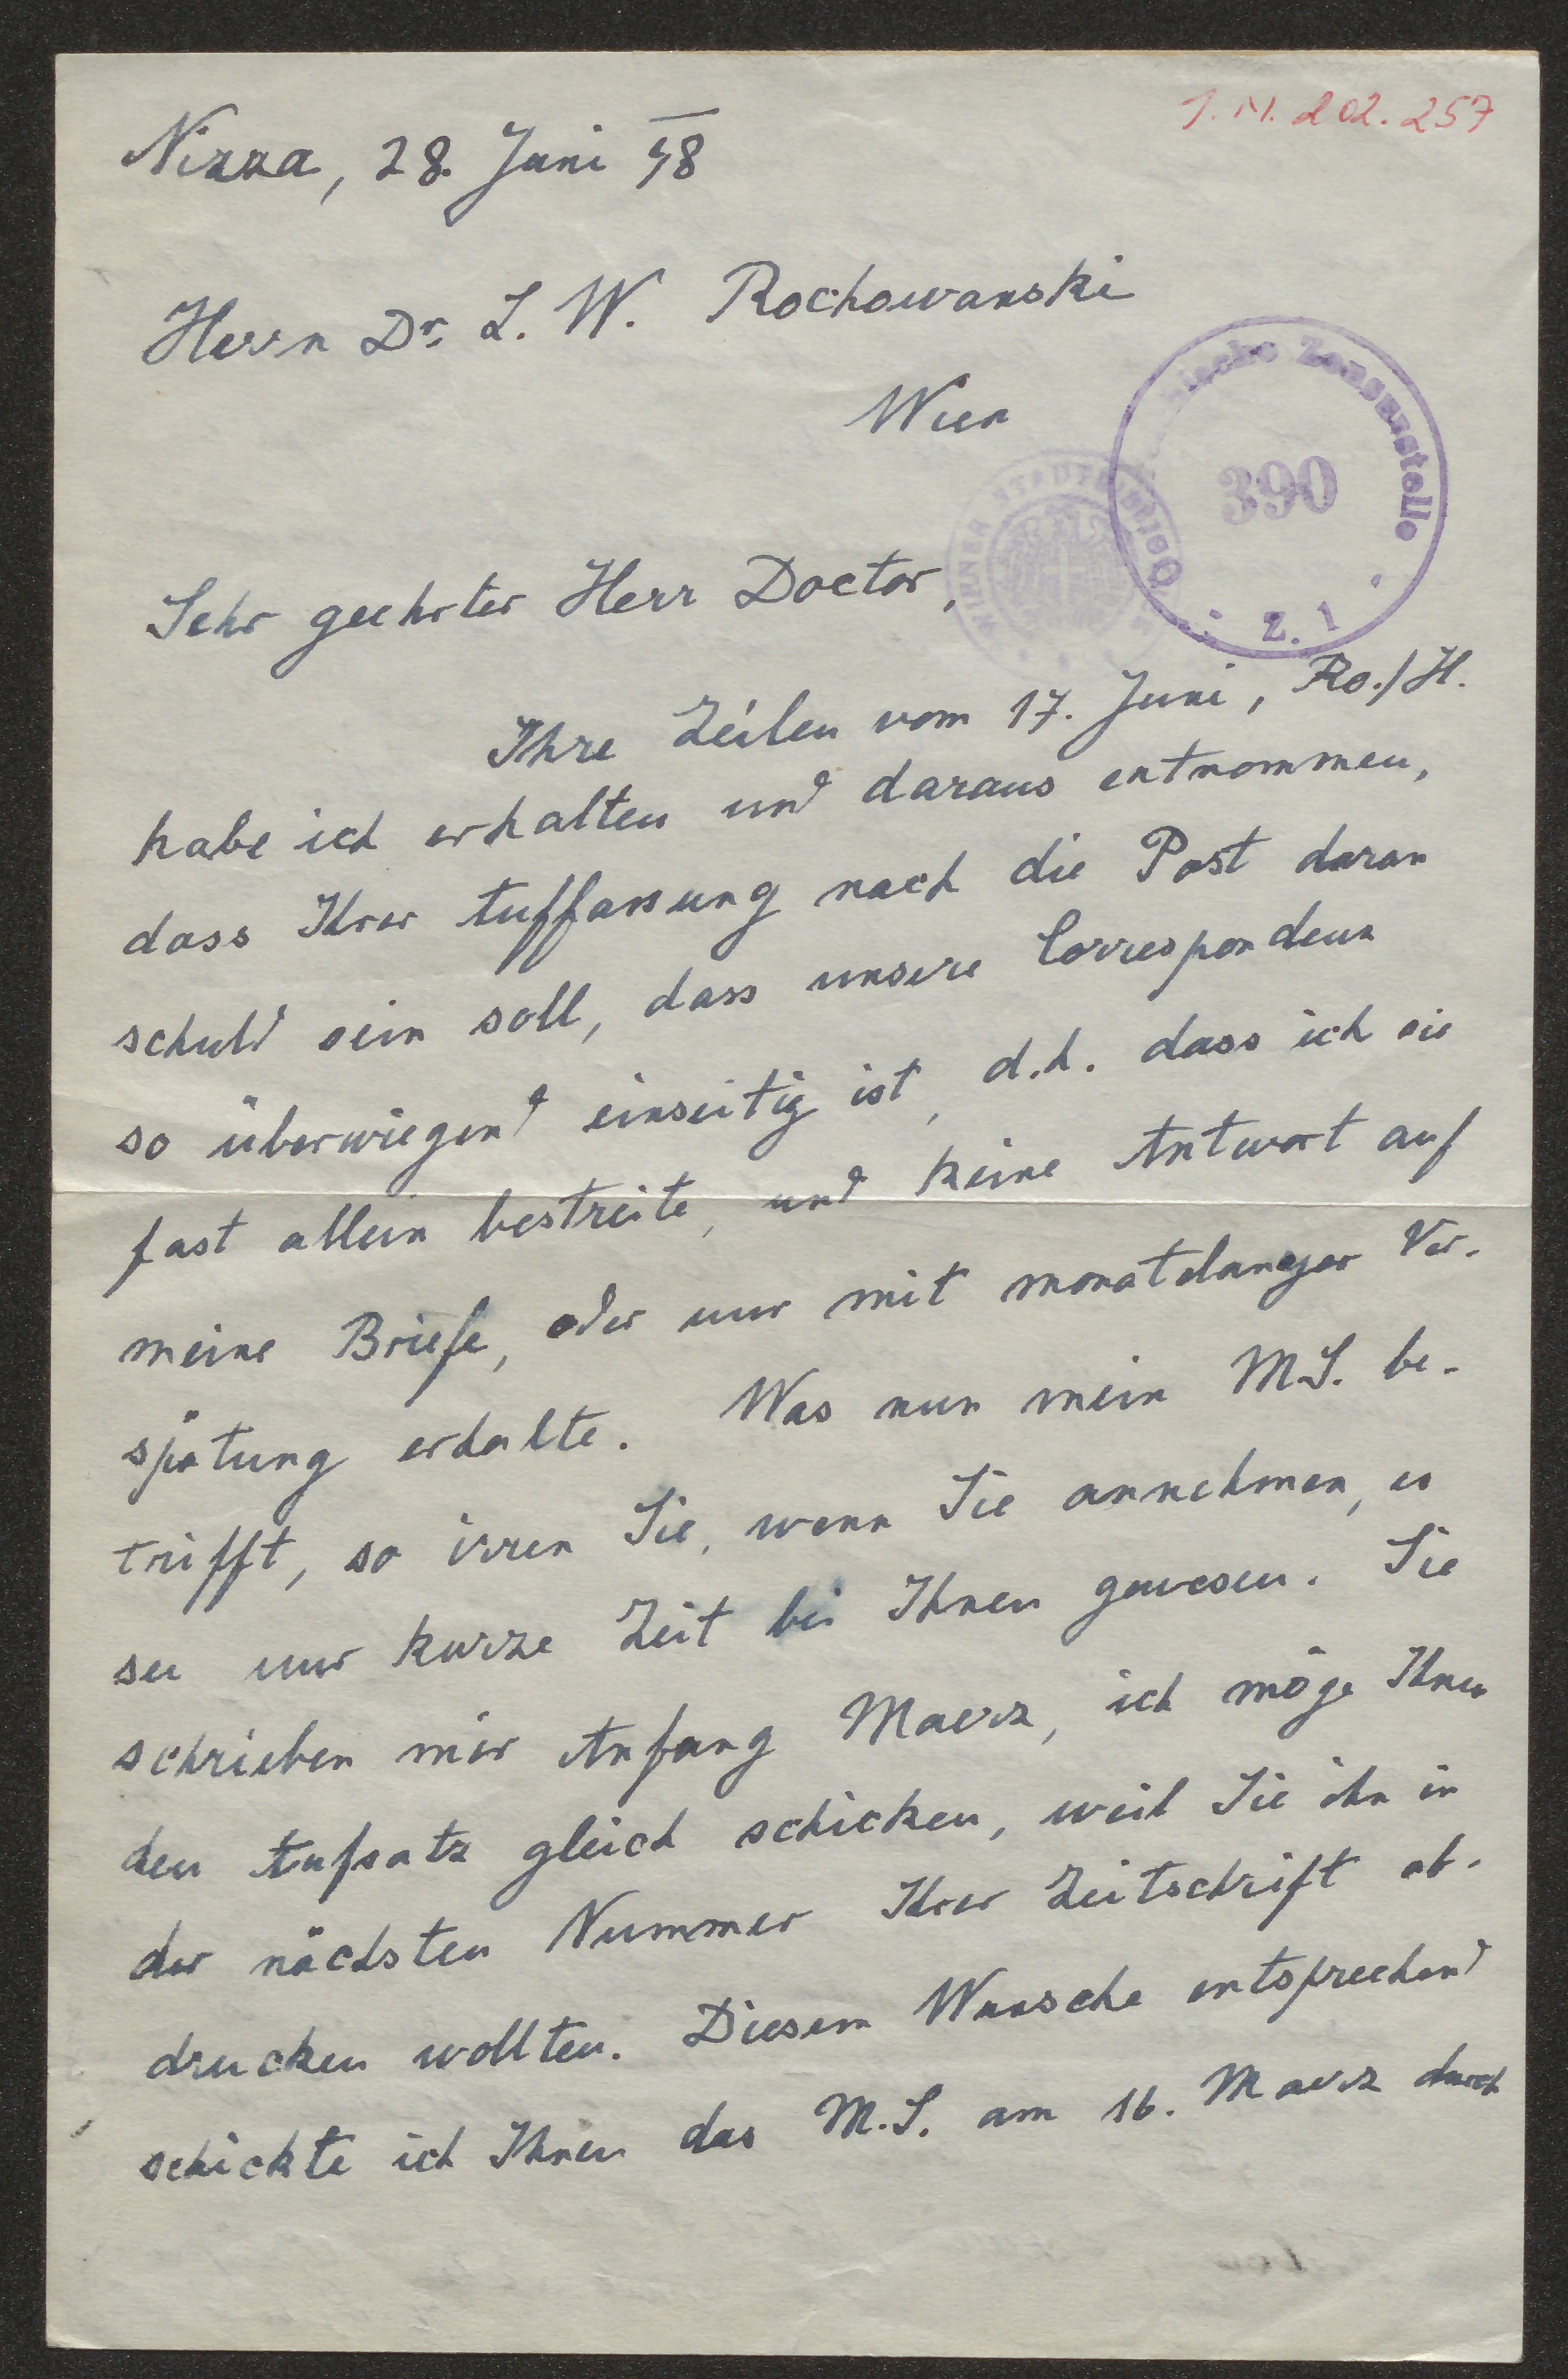 J.N. 202.257
Nizza, 28. Juni 48
Herrn Dr. L. W. Rochowanski
Wien
WIENER STADTBIBLIOTHEK
Österreichische Zensurstelle
390
Z. 1
Sehr geehrter Herr Doctor,
Ihre Zeilen vom 17. Juni, Ro./H.
habe ich erhalten und daraus entnommen,
dass Ihrer Auffassung nach die Post daran
schuld sein soll, dass unsere Correspondenz
so überwiegend einseitig ist, d.h. dass ich sie
fast allein bestreite, und keine Antwort auf
meine Briefe, oder nur mit monatelanger Ver-
spätung erhalte. Was nun mein M.S. be-
trifft, so irren Sie, wenn Sie annehmen, es
sei nur kurze Zeit bei Ihnen gewesen. Sie
schrieben mir Anfang Maerz, ich möge Ihnen
den Aufsatz gleich schicken, weil Sie ihn in
der nächsten Nummer Ihrer Zeitschrift ab-
drucken wollten. Diesem Wunsche entsprechend
schickte ich Ihnen das M.S. am 16. Maerz durch